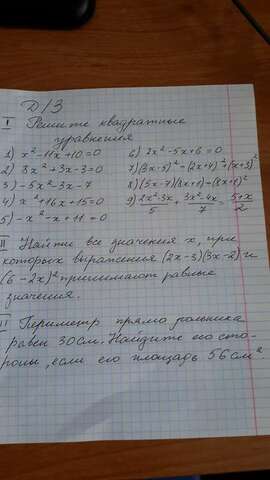 Д/З
I Решите квадратные
уравнения
1) x² - 11x + 10 = 0
2) 3x² + 3x - 3 = 0
3) - 5x² - 3x - 7
4) x² + 16x + 15 = 0
5) - x² - x + 11 = 0
6) 2x² - 5x + 6 = 0
7) (3x - 5)² = (2x + 4)² + (x + 3)²
8) (5x - 7)(3x + 1) = (8x + 1)²
9) (2x² - 3x)/5 + (3x² - 4x)/7 = (5 + x)/2
II Найти все значения x, при
которых выражения (2x - 3)(3x - 2) и
(6 - 2x)² принимают равные
значения.
Периметр прямоугольника
равен 30 см. Найдите его сто-
роны, если его площадь 56 см².